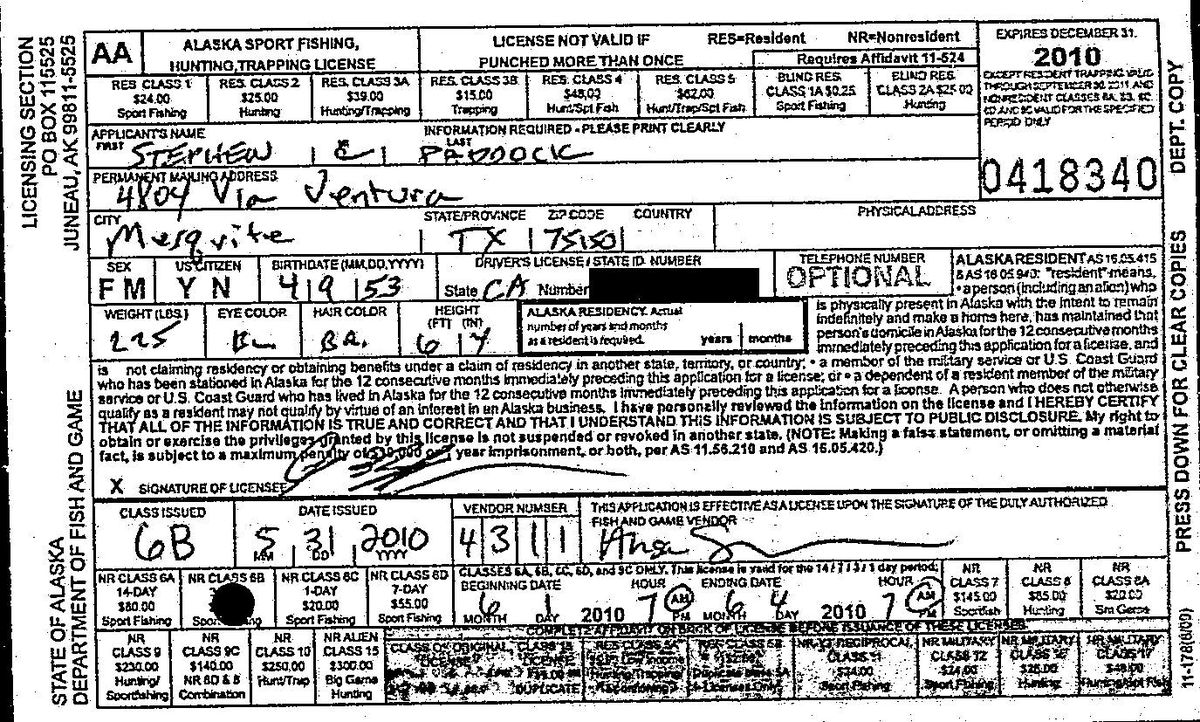 LICENSING SECTION
PO BOX 115525
JUNEAU, AK 99811-5525
STATE OF ALASKA
DEPARTMENT OF FISH AND GAME
AA
ALASKA SPORT FISHING,
HUNTING, TRAPPING LICENSE
LICENSE NOT VALID IF
PUNCHED MORE THAN ONCE
RES=Resident NR=Nonresident
Requires Affidavit 11-524
EXPIRES DECEMBER 31,
2010
EXCEPT RESIDENT TRAPPING VALID
THROUGH SEPTEMBER 30, 2011 AND
NONRESIDENT CLASSES 6A, 6B, 6C,
6D AND 9C VALID FOR THE SPECIFIED
PERIOD ONLY
0418340
RES CLASS 1
$24.00
Sport Fishing
RES. CLASS 2
$25.00
Hunting
RES. CLASS 3A
$39.00
Hunting/Trapping
RES. CLASS 3B
$15.00
Trapping
RES. CLASS 4
$48.00
Hunt/Spt Fish
RES. CLASS 5
$62.00
Hunt/Trap/Spt Fish
BLIND RES.
CLASS 1A $0.25
Sport Fishing
BLIND RES.
CLASS 2A $25.00
Hunting
APPLICANT'S NAME
INFORMATION REQUIRED - PLEASE PRINT CLEARLY
FIRST STEPHEN C LAST PADDOCK
PERMANENT MAILING ADDRESS
4804 Via Ventura
CITY STATE/PROVINCE ZIP CODE COUNTRY
Mesquite TX 75150
PHYSICAL ADDRESS
SEX
F M
US CITIZEN
Y N
BIRTHDATE (MM,DD,YYYY)
4 9 53
DRIVER'S LICENSE / STATE ID. NUMBER
State CA Number
TELEPHONE NUMBER
OPTIONAL
WEIGHT (LBS.)
225
EYE COLOR
BL
HAIR COLOR
BR.
HEIGHT
(FT) (IN)
6 4
ALASKA RESIDENCY. Actual
number of years and months
as a resident is required.
years months
ALASKA RESIDENT AS 16.05.415
& AS 16.05.940: "resident" means,
• a person (including an alien) who
is physically present in Alaska with the intent to remain
indefinitely and make a home here, has maintained that
person's domicile in Alaska for the 12 consecutive months
immediately preceding this application for a license, and
is not claiming residency or obtaining benefits under a claim of residency in another state, territory, or country; • a member of the military service or U.S. Coast Guard
who has been stationed in Alaska for the 12 consecutive months immediately preceding this application for a license; or • a dependent of a resident member of the military
service or U.S. Coast Guard who has lived in Alaska for the 12 consecutive months immediately preceding this application for a license. A person who does not otherwise
qualify as a resident may not qualify by virtue of an interest in an Alaska business. I have personally reviewed the information on the license and I HEREBY CERTIFY
THAT ALL OF THE INFORMATION IS TRUE AND CORRECT AND THAT I UNDERSTAND THIS INFORMATION IS SUBJECT TO PUBLIC DISCLOSURE. My right to
obtain or exercise the privileges granted by this license is not suspended or revoked in another state. (NOTE: Making a false statement, or omitting a material
fact, is subject to a maximum penalty of $10,000 or 1 year imprisonment, or both, per AS 11.56.210 and AS 16.05.420.)
X SIGNATURE OF LICENSEE
CLASS ISSUED
6B
DATE ISSUED
5 31 2010
MM DD YYYY
VENDOR NUMBER
4 3 1 1
THIS APPLICATION IS EFFECTIVE AS A LICENSE UPON THE SIGNATURE OF THE DULY AUTHORIZED
FISH AND GAME VENDOR
NR CLASS 6A
14-DAY
$80.00
Sport Fishing
NR CLASS 6B
NR CLASS 6C
1-DAY
$20.00
Sport Fishing
NR CLASS 6D
7-DAY
$55.00
Sport Fishing
CLASSES 6A, 6B, 6C, 6D, and 9C ONLY. This license is valid for the 14 / 7 / 3 / 1 day period:
BEGINNING DATE HOUR ENDING DATE HOUR
6 1 2010 7 AM 6 4 2010 7 AM
MONTH DAY PM MONTH DAY PM
NR
CLASS 7
$145.00
Sportfish
Hunting
NR
CLASS 8
$85.00
Hunting
NR
CLASS 8A
$20.00
Sm Game
COMPLETE AFFIDAVIT ON BACK OF LICENSE BEFORE ISSUANCE OF THESE LICENSES.
NR
CLASS 9
$230.00
Hunting/
Sportfishing
NR
CLASS 9C
$140.00
NR 6D & 8
Combination
NR
CLASS 10
$250.00
Hunt/Trap
NR ALIEN
CLASS 15
$300.00
Big Game
Hunting
CLASS OF ORIGINAL
LICENSE
CLASS 13
LICENSE
DUPLICATE
Low Income
Hunting/Trapping
Licenses Only
RECIPROCAL
CLASS 11
$24.00
Sport Fishing
NR MILITARY
CLASS 12
$24.00
Sport Fishing
NR MILITARY
Hunting
NR MILITARY
CLASS 17
$48.00
Hunting/Spt Fish
DEPT. COPY
PRESS DOWN FOR CLEAR COPIES
11-178(8/09)